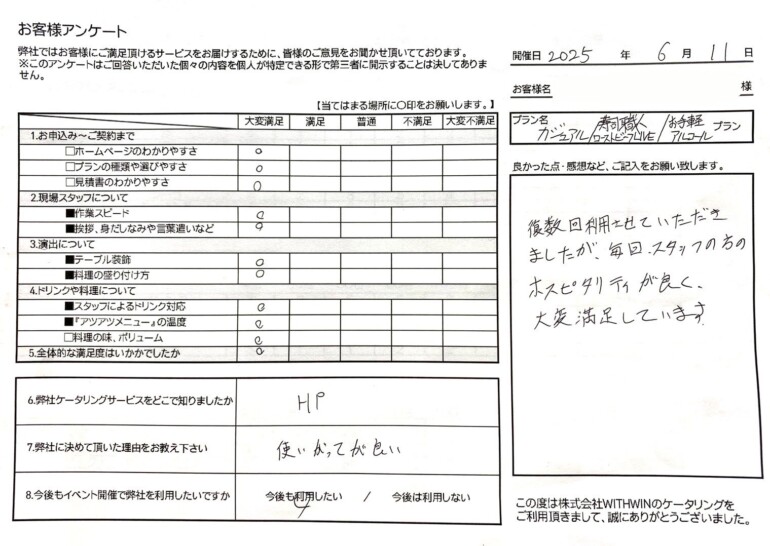 お客様アンケート
弊社ではお客様にご満足頂けるサービスをお届けするために、皆様のご意見をお聞かせ頂いております。
※このアンケートはご回答いただいた個々の内容を個人が特定できる形で第三者に開示することは決してありません。
【当てはまる場所に○印をお願いします。】
大変満足 満足 普通 不満足 大変不満足
1.お申込み～ご契約まで
□ホームページのわかりやすさ ○
□プランの種類や選びやすさ ○
□見積書のわかりやすさ ○
2.現場スタッフについて
■作業スピード ○
■挨拶、身だしなみや言葉遣いなど ○
3.演出について
■テーブル装飾 ○
■料理の盛り付け方 ○
4.ドリンクや料理について
■スタッフによるドリンク対応 ○
■『アツアツメニュー』の温度 ○
□料理の味、ボリューム ○
5.全体的な満足度はいかかでしたか ○
6.弊社ケータリングサービスをどこで知りましたか HP
7.弊社に決めて頂いた理由をお教え下さい 使いがってが良い
8.今後もイベント開催で弊社を利用したいですか 今後も利用したい / 今後は利用しない
開催日 2025 年 6 月 11 日
お客様名 様
プラン名 カジュアル/寿司職人 ローストビーフLIVE/お手軽 アルコール プラン
良かった点・感想など、ご記入をお願い致します。
復数回利用させていただき
ましたが、毎回、スタッフの方の
ホスピタリティが良く、
大変満足しています
この度は株式会社WITHWINのケータリングを
ご利用頂きまして、誠にありがとうございました。